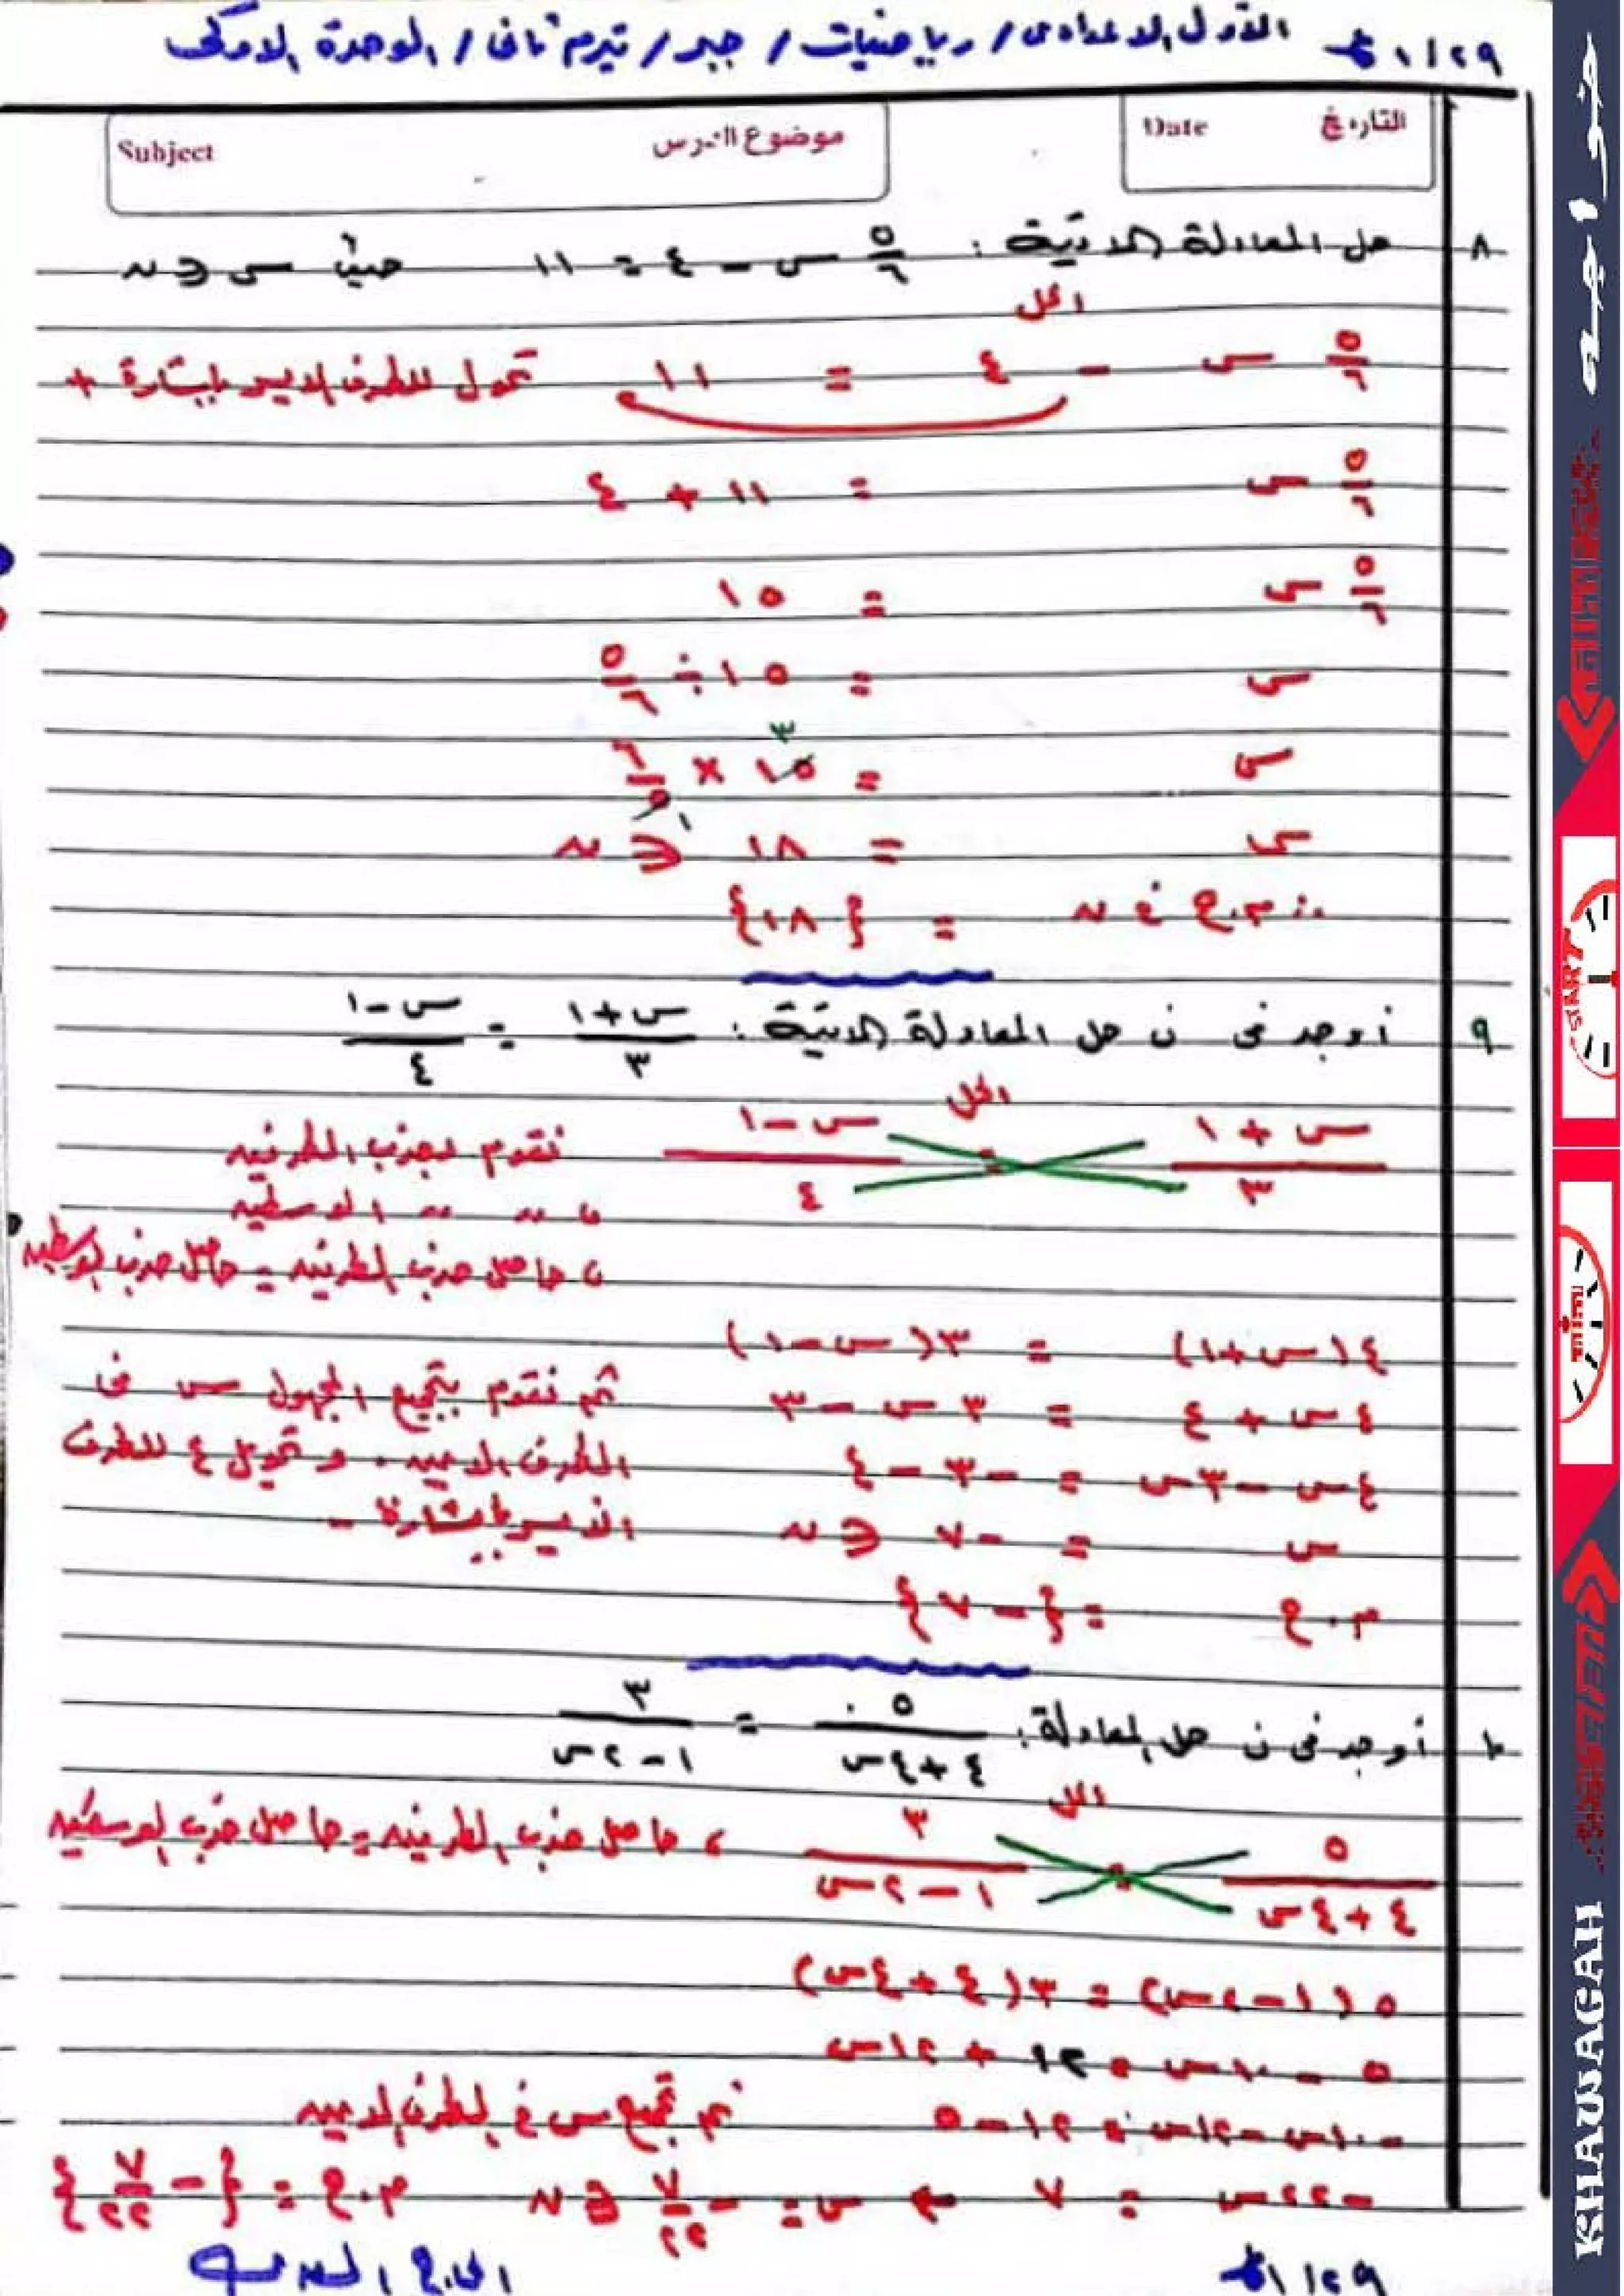 ١/٢٩ الأول الاعدادى / رياضيات / جبر / تيرم ثانى / الوحدة الاولى
التاريخ Date موضوع الدرس Subject
٨ حل المعادلة الآتية : ٥/٦ س - ٤ = ١١ حيث س ∈ ن
الحل
٥/٦ س - ٤ = ١١ تحول للطرف الايسر باشارة +
٥/٦ س = ١١ + ٤
٥/٦ س = ١٥
س = ١٥ ÷ ٥/٦
س = ١٥ × ٦/٥ ٣ ١
س = ١٨ ∈ ن
∴ م.ح في ن = {١٨}
٩ أوجد فى ن حل المعادلة الاتية : س+١/٣ = س-١/٤
الحل
س+١/٣ = س-١/٤ نقوم بضرب الطرفين
، ,, ,, الوسطين
، حاصل ضرب الطرفين = حاصل ضرب الوسطين
٤(س+١) = ٣(س-١)
٤س + ٤ = ٣س - ٣ ثم نقوم بتجميع المجهول س فى
٤س - ٣س = -٣ - ٤ الطرف الايمن . و تحويل ٤ للطرف
س = -٧ ∈ ن الايسر باشارة -
م.ح = {-٧}
١٠ أوجد فى ن حل المعادلة : ٥/٤+٤س = ٣/١-٢س
الحل
٥/٤+٤س = ٣/١-٢س ، حاصل ضرب الطرفين = حاصل ضرب الوسطين
٥(١-٢س) = ٣(٤+٤س)
٥ - ١٠س = ١٢ + ١٢س
-١٠س - ١٢س = ١٢ - ٥ ثم تجميع س في الطرف الايمن
-٢٢س = ٧ ← س = -٧/٢٢ ∈ ن م.ح = {-٧/٢٢}
١/٢٩
خواجه
START
time
KHAWAGAH